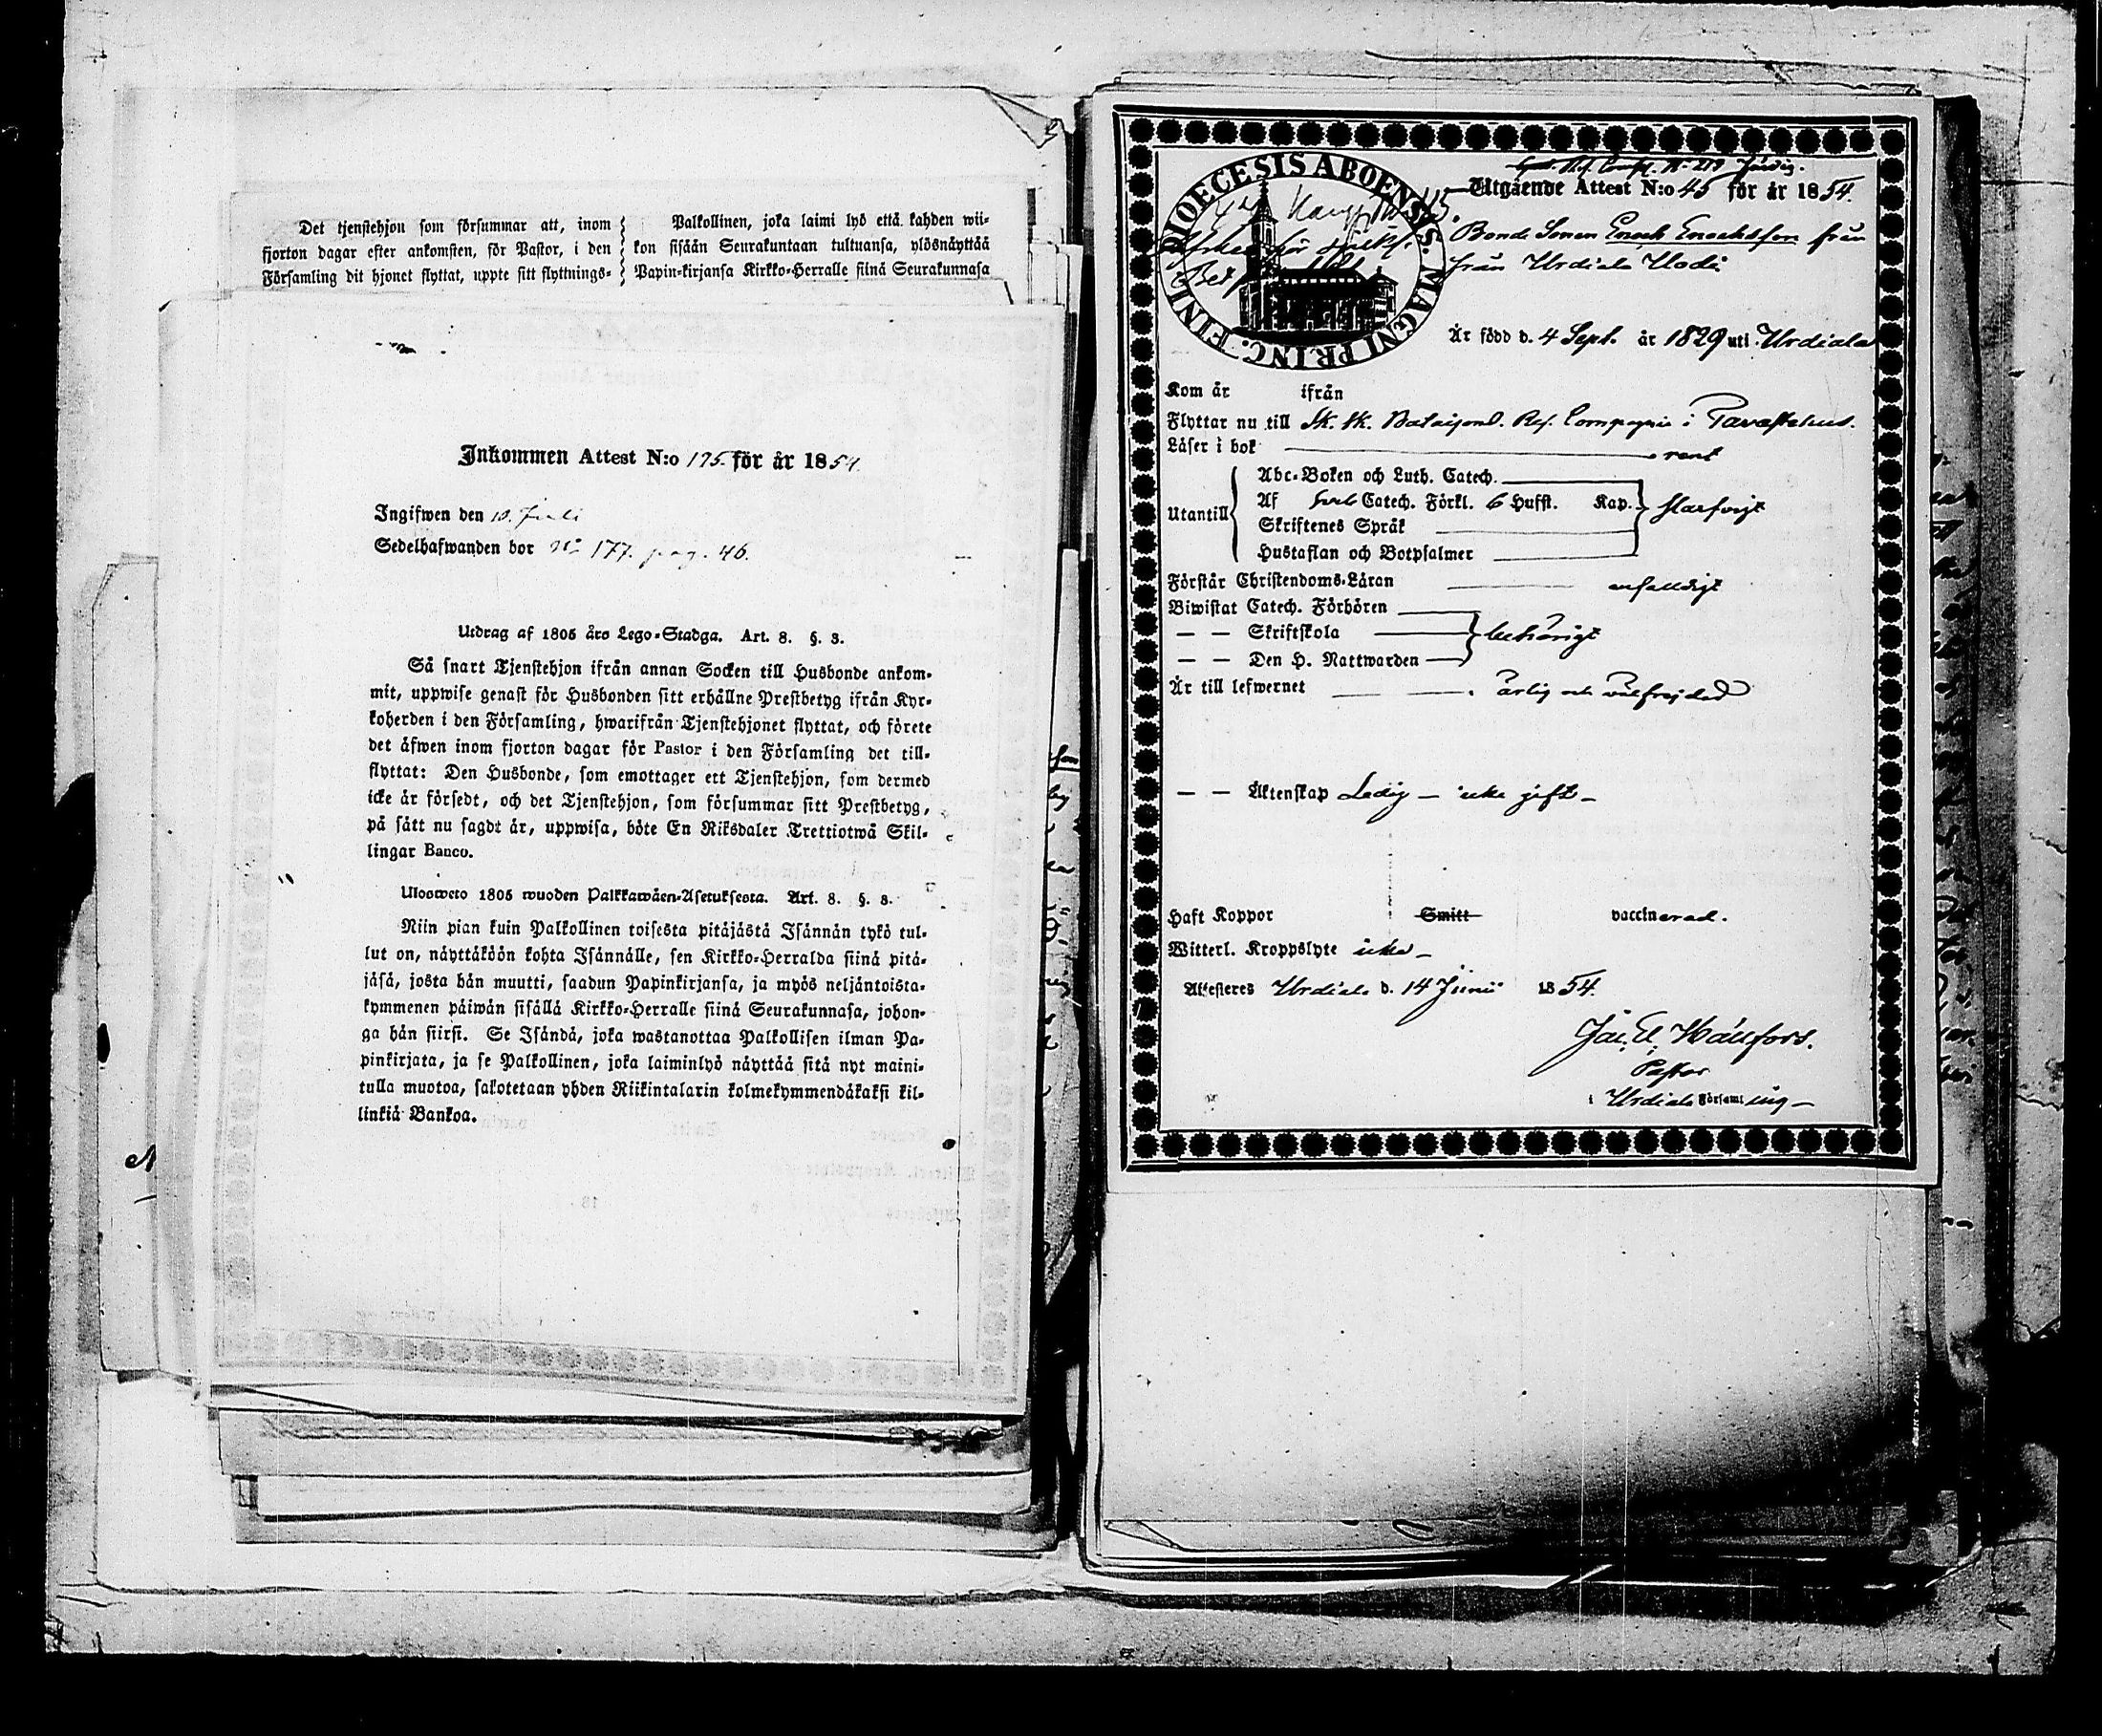 Det tjenstehjon som försummar att, inom
fjorton dagar efter ankomsten, för Pastor, i den
Församling dit hjonet flyttat, uppte sitt flyttnings-
Palkollinen, joka laimi lyö että kahden wii-
kon sisään Seurakuntaan tultuansa, ylösnäyttää
Papin-kirjansa Kirkko-Herralle siinä Seurakunnasa
Inkommen Attest N:o 175. för år 1854.
Ingifwen den 10. Juli
Sedelhafwanden bor No 177. pag. 46.
Utdrag af 1805 års Lego-Stadga. Art. 8. §. 3.
Så snart Tjenstehjon ifrån annan Socken till Husbonde ankom-
mit, uppwise genast för Husbonden sitt erhållne Prestbetyg ifrån Kyr-
koherden i den Församling, hwarifrån Tjenstehjonet flyttat, och förete
det äfwen inom fjorton dagar för Pastor i den Församling det till-
flyttat: Den Husbonde, som emottager ett Tjenstehjon, som dermed
icke är försedt, och det Tjenstehjon, som försummar sitt Prestbetyg,
på sätt nu sagdt är, uppwisa, böte En Riksdaler Trettiotwå Skil-
lingar Banco.
Ulosweto 1805 wuoden Palkkawäen-Asetuksesta. Art. 8. §. 3.
Niin pian kuin Palkollinen toisesta pitäjästä Isännän tykö tul-
lut on, näyttäköön kohta Isännälle, sen Kirkko-Herralda siinä pitä-
jäsä, josta hän muutti, saadun Papinkirjansa, ja myös neljäntoista-
kymmenen päiwän sisällä Kirkko-Herralle siinä Seurakunnasa, johon-
ga hän siirsi. Se Isändä, joka wastanottaa Palkollisen ilman Pa-
pinkirjata, ja se Palkollinen, joka laiminlyö näyttää sitä nyt maini-
tulla muotoa, sakotetaan yhden Riikintalarin kolmekymmendäkaksi kil-
linkiä Bankoa.
DIOECESIS ABOENSIS. MAGNI PRINC. FINL.
Comp. No 219
Utgående Attest N:o 45 för år 1854.
Bonde Sonen Enoch Enochsson från
från Urdiala
Är född d. 4 Sept. år 1829 uti Urdiala
Kom år ifrån
Flyttar nu till Sk. Sk. Bataijond. Res. Compagnie i Tavastehus.
Läser i bok rent
Utantill
Abc-Boken och Luth. Catech.
Af Catech. Förkl. 6 Hufst. Kap.
Skriftenes Språk
Hustaflan och Botpsalmer
Förstår Christendoms-Läran enfaldigt
Biwistat Catech. Förhören
— — Skriftskola behörigt
— — Den H. Nattwarden
Är till lefwernet ärlig och välfrejdad
— — Äktenskap Ledig — icke gift —
Haft Koppor Smitt vaccinerad.
Witterl. Kroppslyte icke —
Attesteres Urdiala d. 14 Junii 1854.
Pastor
i Urdiala Församling —